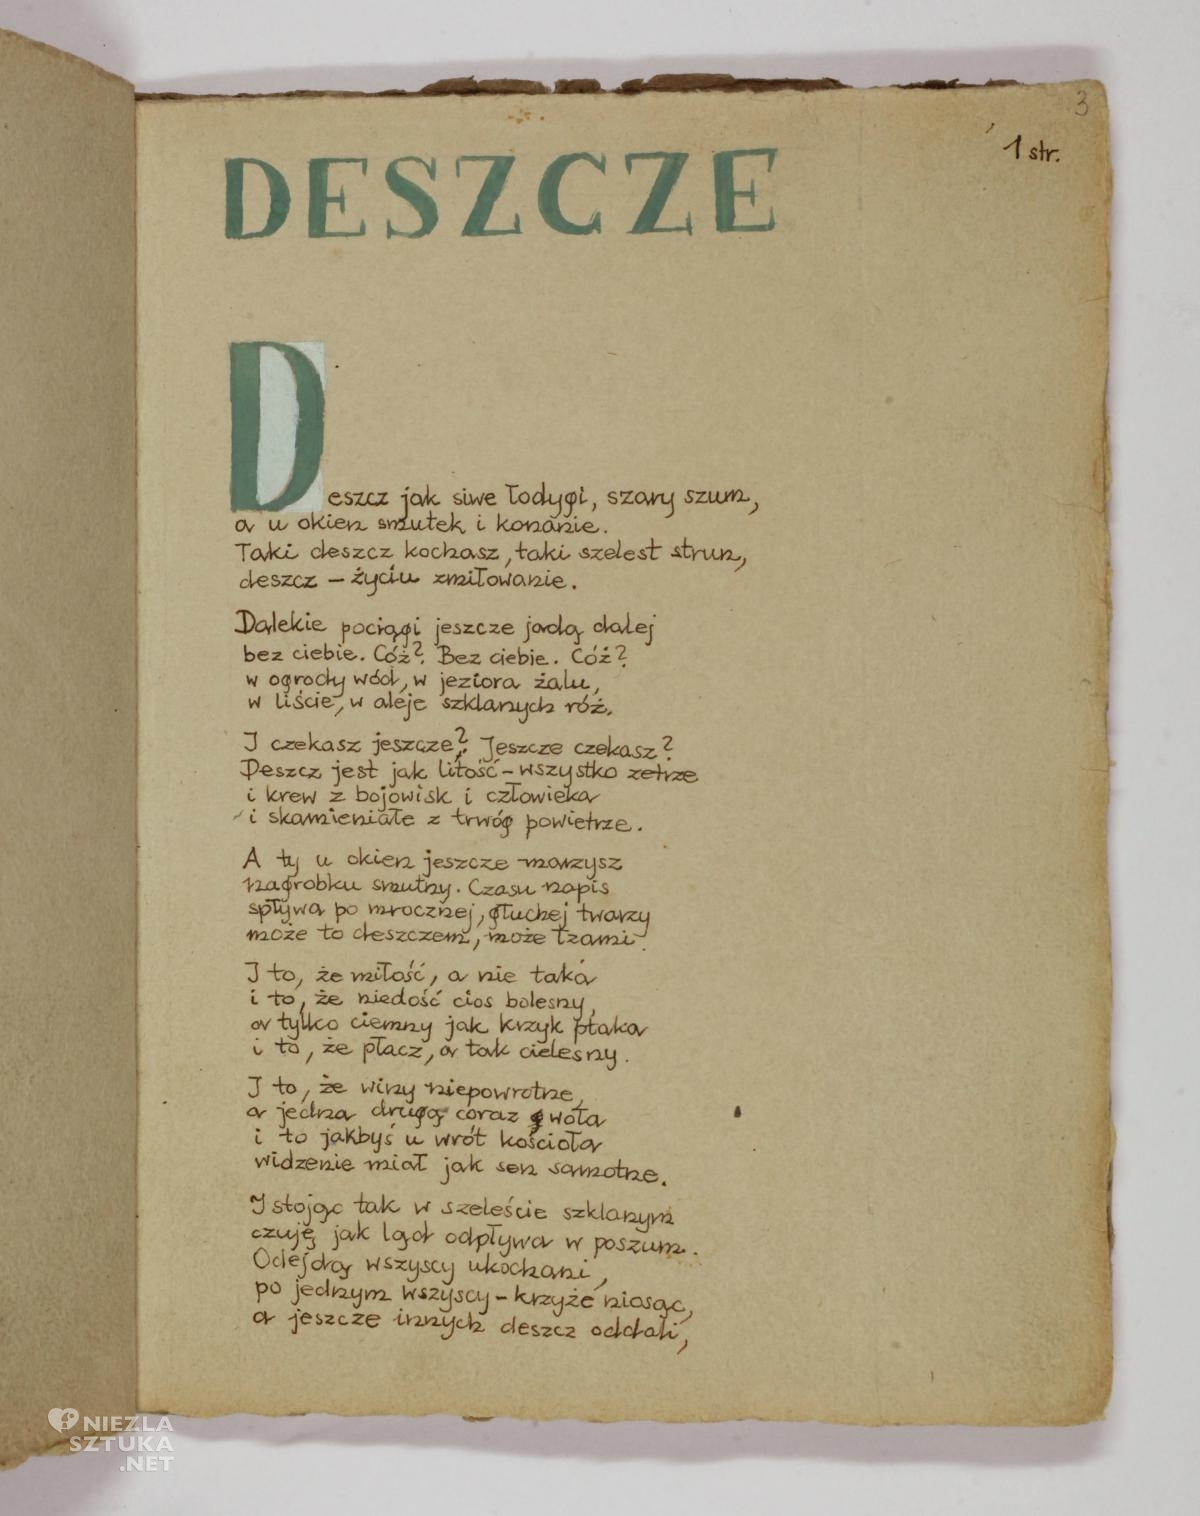 3
1 str.
DESZCZE
Deszcz jak siwe łodygi, szary szum,
a u okien smutek i konanie.
Taki deszcz kochasz, taki szelest strun,
deszcz – życiu zmiłowanie.
Dalekie pociągi jeszcze jadą dalej
bez ciebie. Cóż? Bez ciebie. Cóż?
w ogrody wód, w jeziora żalu,
w liście, w aleje szklanych róż.
I czekasz jeszcze? Jeszcze czekasz?
Deszcz jest jak litość – wszystko zetrze
i krew z bojowisk i człowieka
i skamieniałe z trwóg powietrze.
A ty u okien jeszcze marzysz
nagrobku smutny. Czasu napis
spływa po mrocznej, głuchej twarzy
może to deszczem, może łzami.
I to, że miłość, a nie taka
i to, że niedość cios bolesny,
a tylko ciemny jak krzyk ptaka
i to, że płacz, a tak cielesny.
I to, że winy niepowrotne,
a jedna drugą coraz woła
i to jakbyś u wrót kościoła
widzenie miał jak sen samotne.
I stojąc tak w szeleście szklanym
czuję, jak ląd odpływa w poszum.
Odejdą wszyscy ukochani,
po jednym wszyscy – krzyże niosąc,
a jeszcze innych deszcz oddali,
NIEZLA
SZTUKA
.NET